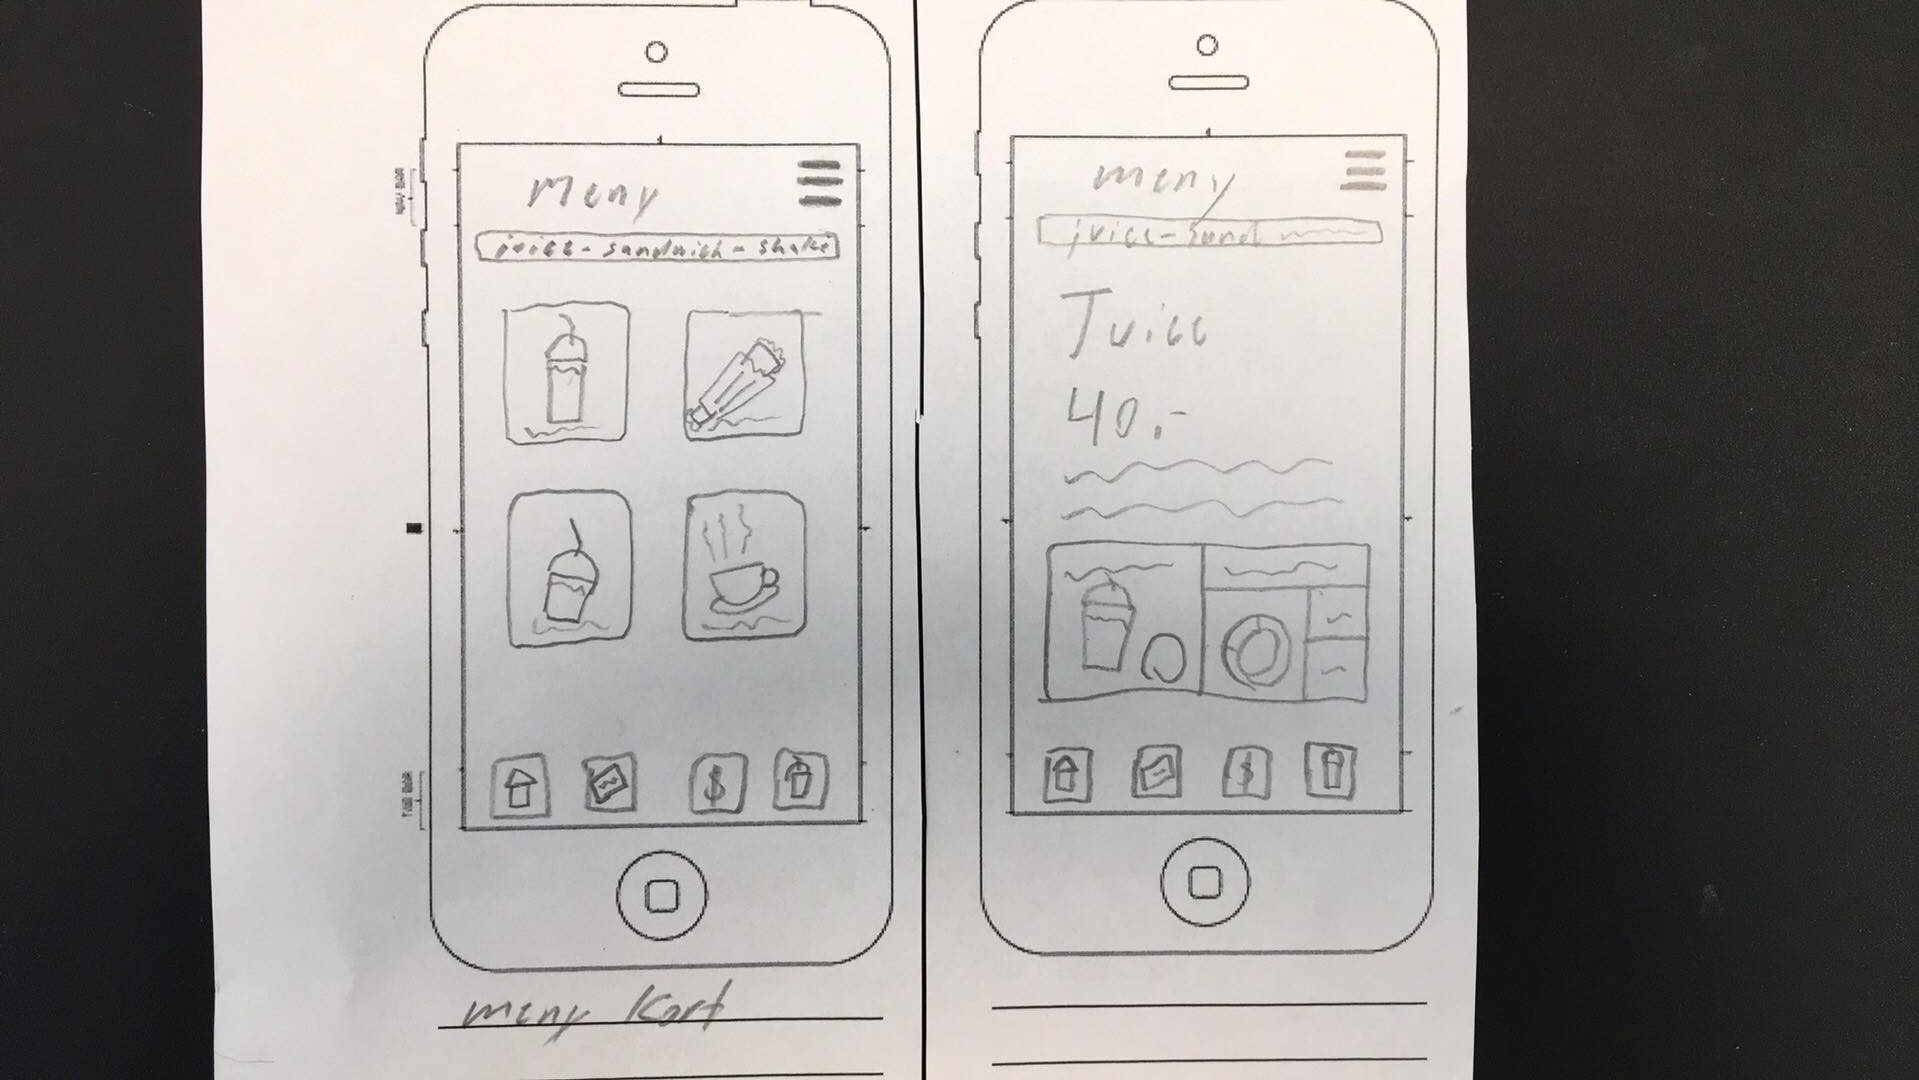 meny
juice - sandwich - shake
$
meny kort
meny
juice - sand
Juice
40.-
$